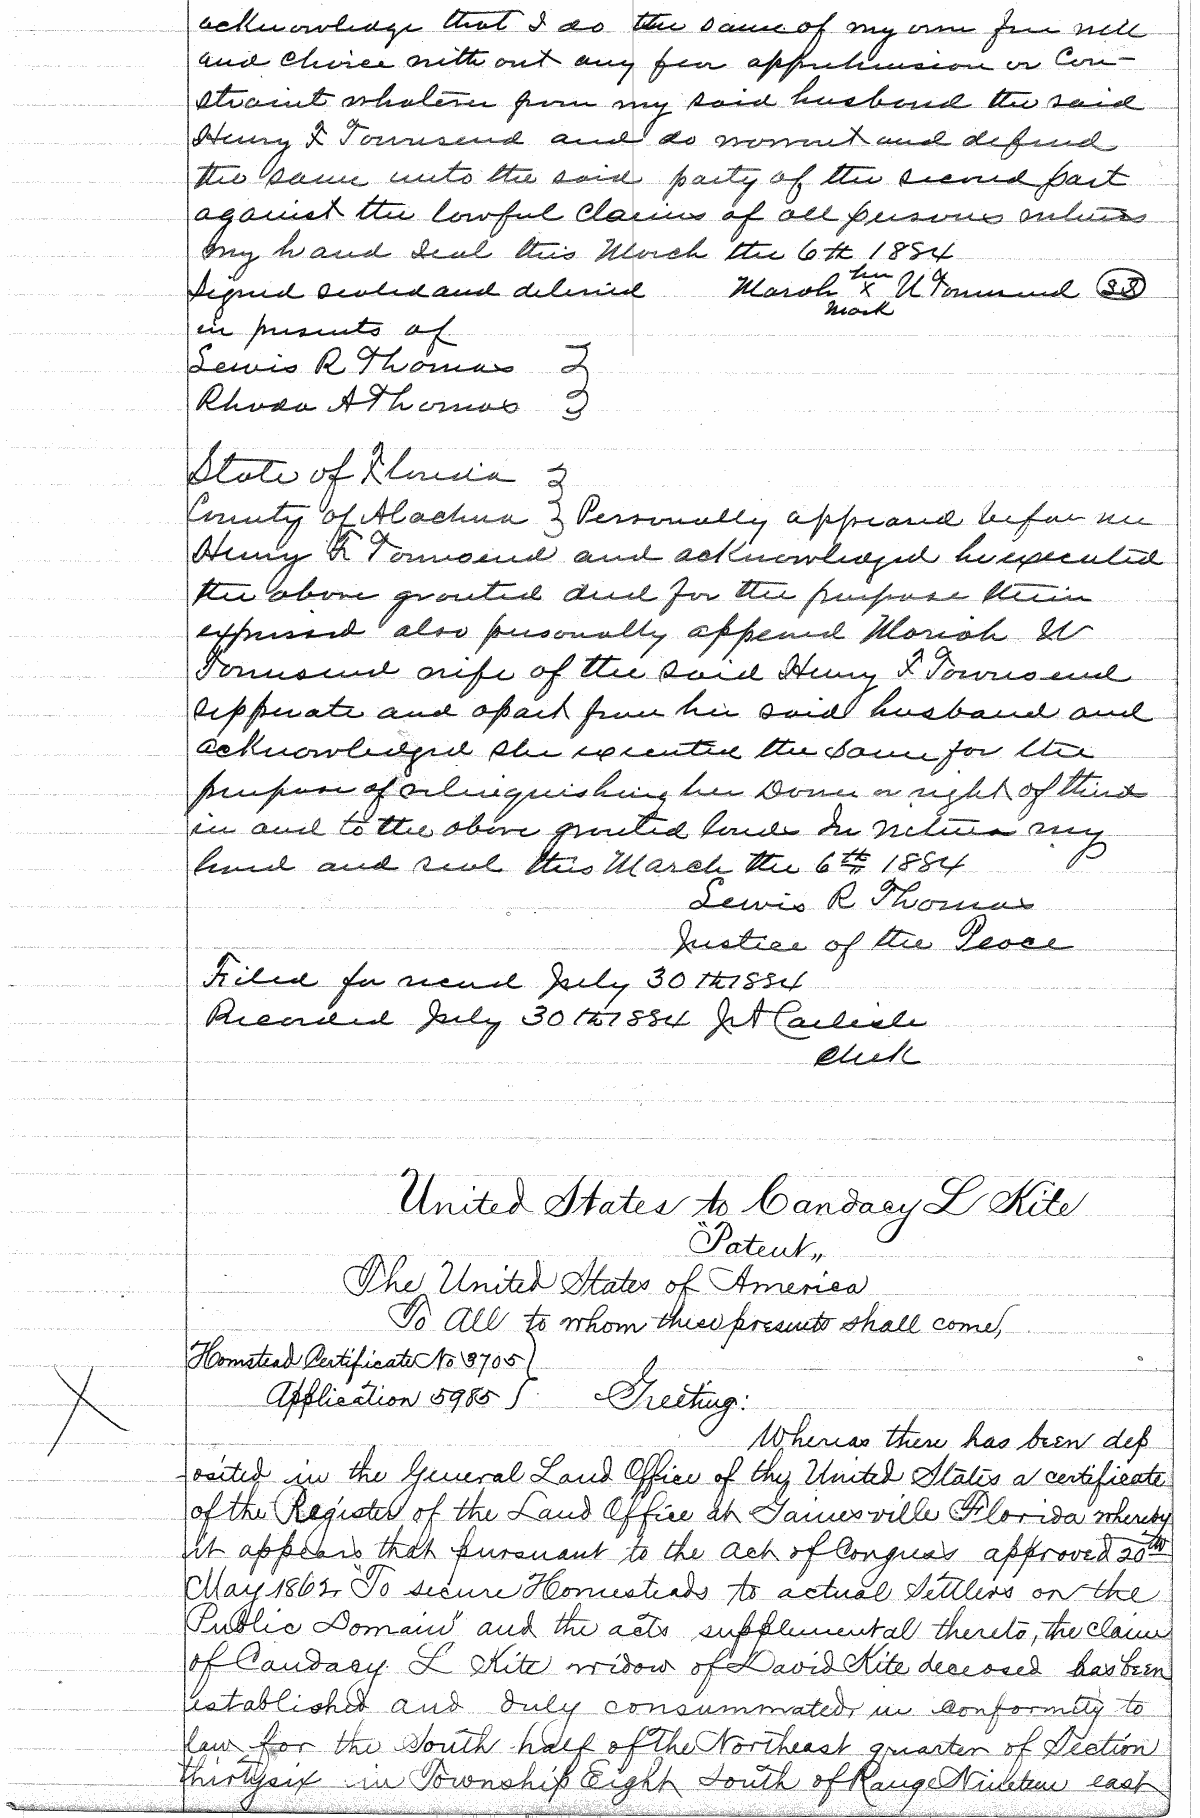 acknowledge that I do the same of my own free will
and choice without any fear apprehension or Con-
straint whatever from my said husband the said
Henry F Townsend and do warrant and defend
the same unto the said party of the second part
against the lawful claims of all persons witness
my hand seal this March the 6th 1884
Signed sealed and delivered Mariah her x mark W Townsend
in presents of
Lewis R Thomas }
Rhoda A Thomas }
State of Florida }
County of Alachua } Personally appeared before me
Henry F Townsend and acknowledged he executed
the above granted deed for the purpose therin
expressed also personally appeared Mariah W
Townsend wife of the said Henry F Townsend
sepperate and apart from her said husband and
acknowledged she executed the same for the
purpose of relinquishing her Dower or right of third
in and to the above granted lands In witness my
hand and seal this March the 6th 1884
Lewis R Thomas
Justice of the Peace
Filed for record July 30th 1884
Recorded July 30th 1884 J A Carlisle
Clerk
United States to Candacy L Kite
"Patent"
The United States of America
To All to whom these presents shall come,
Homstead Certificate No 3705 }
Application 5985 } Greeting:
Whereas there has been dep
osited in the General Land Office of the United States a certificate
of the Register of the Land Office at Gainesville Florida whereby
it appears that pursuant to the act of Congress approved 20th
May 1862 "To secure Homesteads to actual Settlers on the
Public Domain" and the acts supplemental thereto, the claim
of Candacy L Kite widow of David Kite deceased has been
established and duly consummated in conformity to
law for the South half of the Northeast quarter of Section
thirtysix in Township Eight South of Range Nineteen east